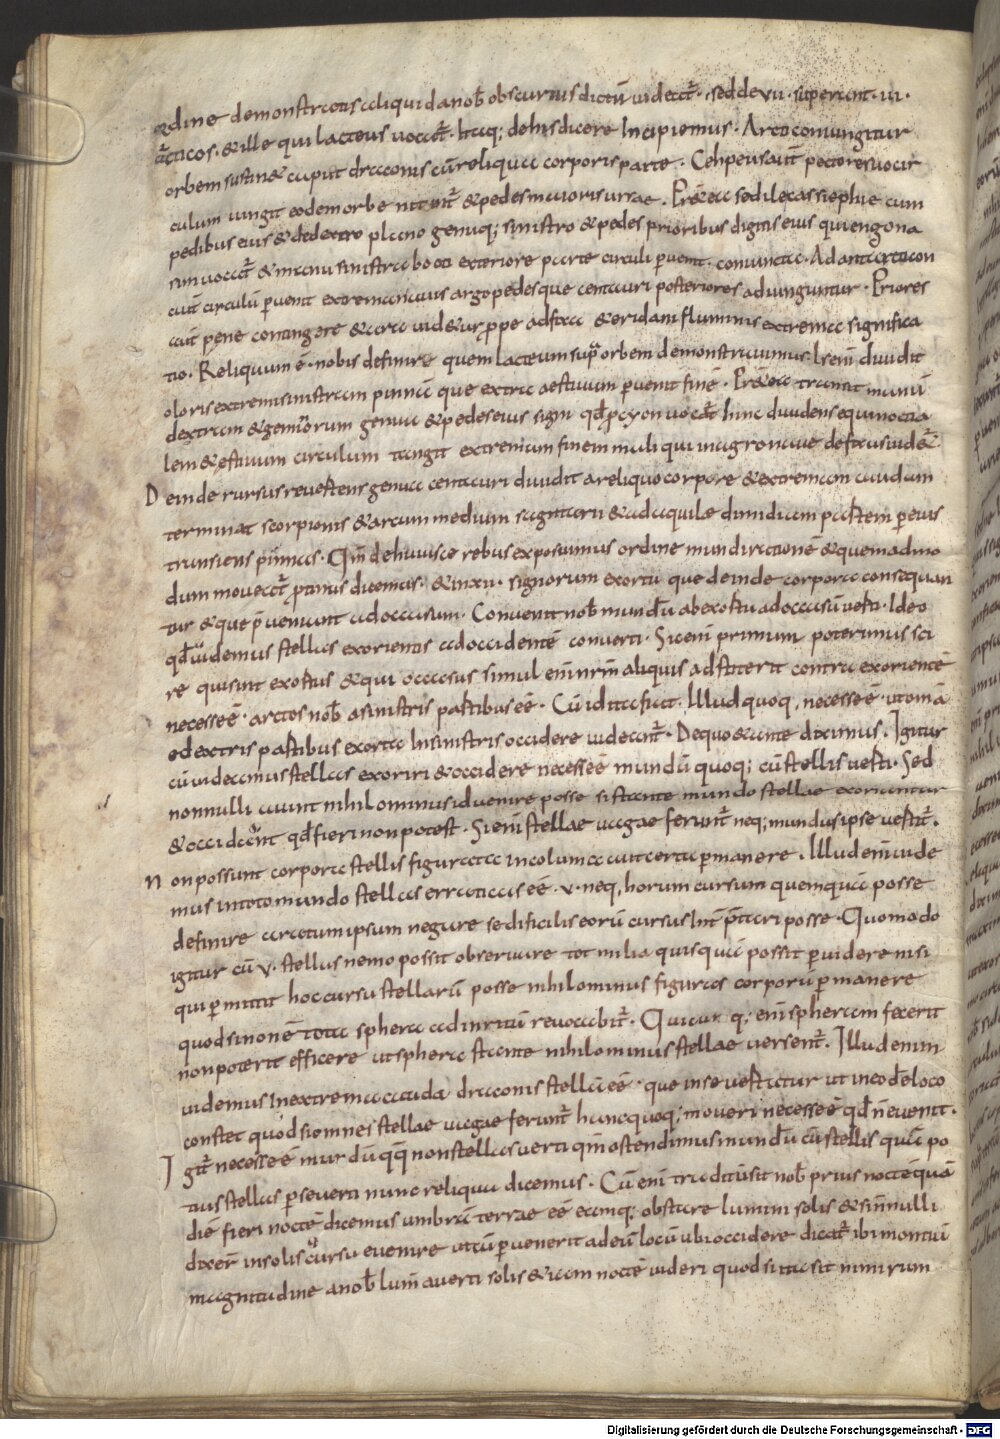 ordine demonstratis aliquid a nob obscurius dictū uideat̄. sed de vii. superant. iii.
arcticos. & ille qui lacteus uocat̄. Itaq; de his dicere Incipiemus. Arcto coniungitur
orbem sustin& caput draconis cū reliqua corporis parte. Cepheus aut̄ pectore suo cir
culum iungit eodem orbe nit & pedes maioris ursae. Prae&ea sedile cassiephiae cum
pedibus eius & dedextro plano genuq; sinistro & pedes prioribus digitis eius qui engona
sin uocat̄ & manu sinistra bootis exteriore parte circuli puenit. coniuncta. Ad antarcticon
aut̄ circulū puenit extrema nauis argo pedesque centauri posteriores adiunguntur. Priores
aut̄ pene contingere & ara uid&ur ppe ad hanc & eridani fluminis extrema significa
tio. Reliquum ē. nobis definire quem lacteum supra orbem demonstrauimus. Is enī diuidit
oloris extremi sinistram pinnā que extra aestiuum puenit finē. Prae&ea transit manū
dextram & geminorum genua & pedes eius signi qđ procyon uocat̄ hinc diuidens equinoctia
lem & estiuum circulum tangit extremam finem mali qui in argo naue defixus uidet̄
Deinde rursus reuertens genua centauri diuidit a reliquo corpore & extremam caudam
terminat scorpionis & arcum medium sagittarii & adaquilę dimidiam partem p eius
transiens pinnas. Qm̄ de huiusce rebus exposuimus ordine mundi ractionē & quemadmo
dum moueat̄ protinus dicemus. & in xii. signorum exortu que deinde corpora consequan
tur & que pueniant ad occasum. Conuenit nob mundū ab exortu ad occasū uerti. Ideo
qđ uidemus stellas exorientis ad occidentē conuerti. Sic enī primum poterimus sci
re qui sint exortus & qui occasus simul enī nrm̄ aliquis ad steterit contra exorientē
necesse ē. arctos nob a sinistris partibus eē. Cū id ita fiat. Illud quoq, necesse ē. ut omīa
a dextris partibus exorta In sinistris occidere uideant̄. De quo & ante diximus. Igitur
cū uideamus stellas exoriri & occidere necesse ē mundū quoq; cū stellis uerti. Sed
nonnulli aiunt nihilominus id uenire posse si stante mundo stellae exoriantur
& occidant qđ fieri non potest. Si enī stellae uagae ferunt̄ neq; mundus ipse uertit̄.
Non possunt corpora stellis figurata incoluma aut certa pmanere. Illud enī uide
mus in toto mundo stellas erraticas eē. v. neq, horum cursum quemquā posse
definire arectum ipsum negare se dificilis eorū cursus Int̄ ptari posse. Quomodo
igitur cū v. stellas nemo possit obseruare tot milia quisquā possit puidere nisi
qui pmittit hoc cursu stellarū posse nihilominus figuras corporū pmanere
quod si non ē tota sphera ad inritū reuocabit̄. Qui cur q; enī spheram fecerit
non poterit efficere ut sphera stante nihilominus stellae uersent̄. Illud enim
uidemus In extrema cauda draconis stellā eē. que in se uertatur ut in eodē loco
constet quod si omnes stellae uagae ferunt̄ hanc quoq; moueri necesse ē qđ n̄ euenit.
Igit̄ necesse ē mundū q̄q̄ non stellas uerti qm̄ ostendimus mundū cū stellis quā po
tius stellas p se uerti nunc reliqua dicemus. Cū enī traditū sit nob prius noctē quā
diē fieri noctē dicemus umbrā terrae eē eamq; obstare lumini solis & si nnulli
dixer̄ in solis cursu euenire ut cū puenerit ad eū locū ubi occidere dicat̄ ibi montiū
magnitudine a nob lum̄ auerti solis & iam noctē uideri quod si ita sit nimirum
Digitalisierung gefördert durch die Deutsche Forschungsgemeinschaft - DFG